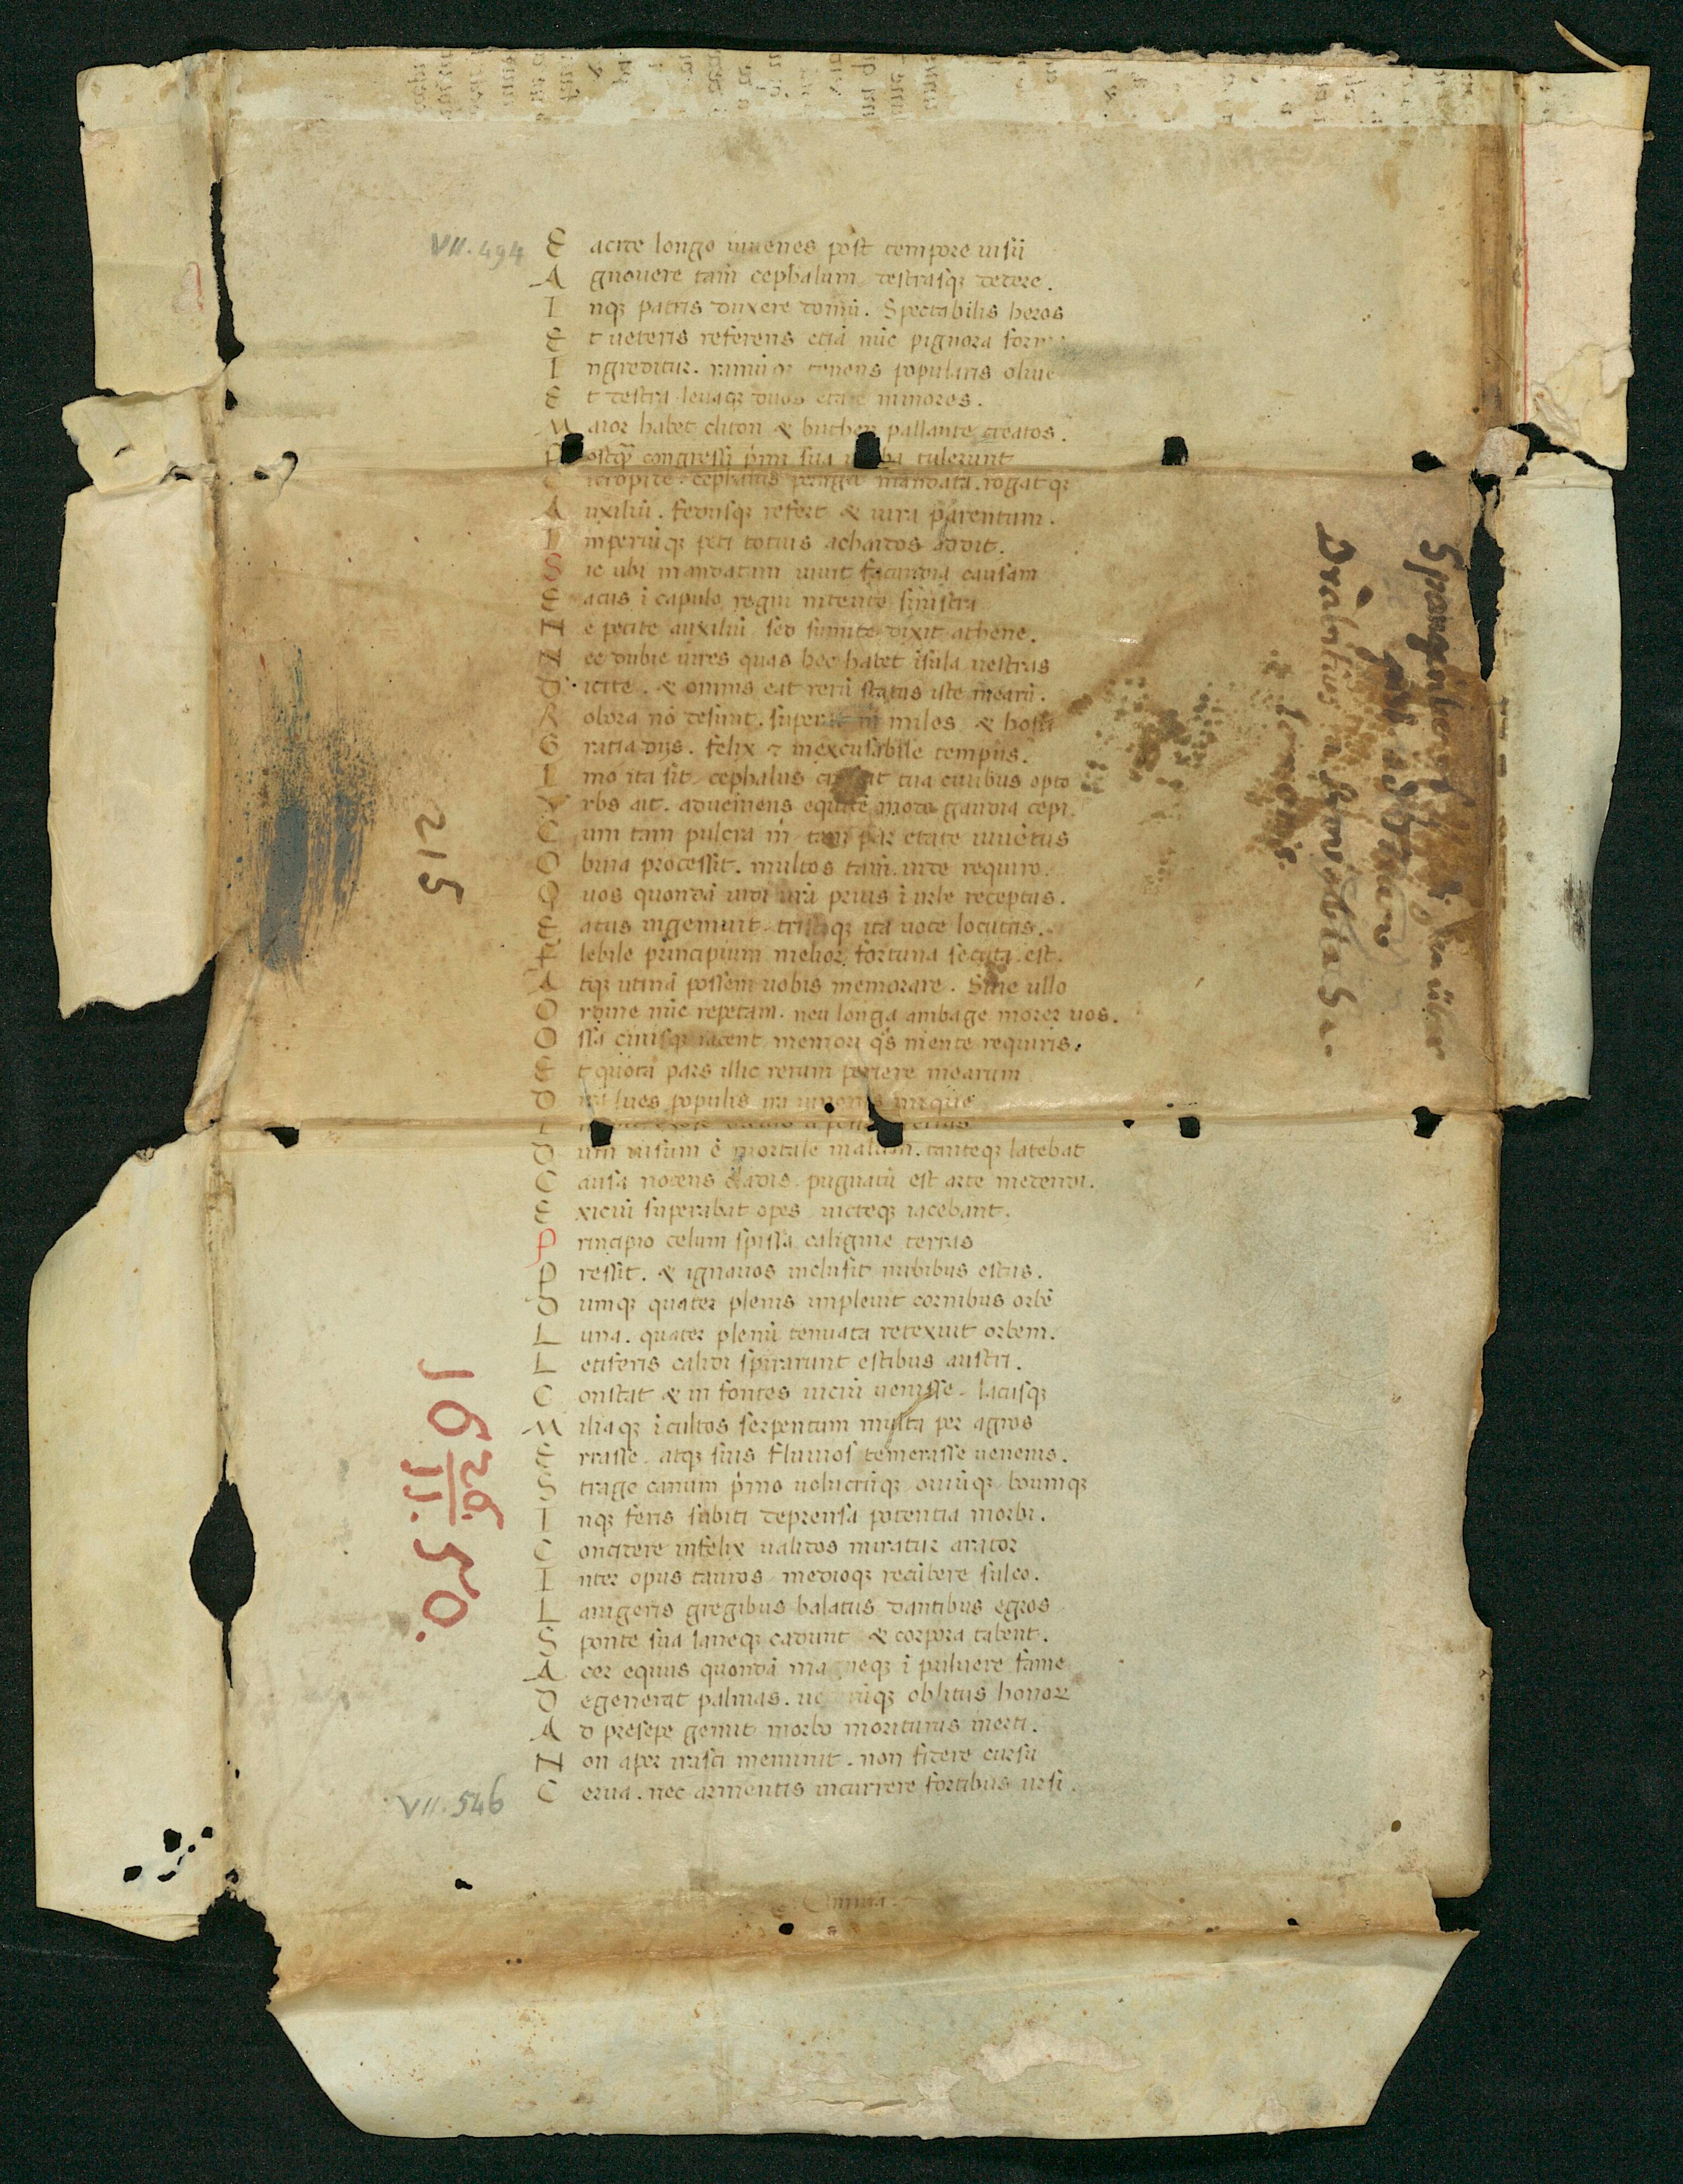 VII. 494
E acide longo iuuenes post tempore uisũ
A gnouere tam̃ cephalum destrasqꝫ dedere.
I nqꝫ patris duxere domũ. Spectabilis heros
E t ueteris referens etiã nũc pignora form
I ngreditur. ramũqꝫ tenens popularis oliue
E t destra leuaqꝫ duos etate minores.
M aior habet cliton & buthen pallante creatos.
P ostqꝫ̃ congressũ prim sua uerba tulerunt
C icropide cephalus peragit mandata. rogatqꝫ
A uxiliũ. fedusqꝫ refert & iura parentum.
I mperiũqꝫ peti totius achaidos addit.
S ic ubi mandatam iuuit facundia causam
E acus ĩ capulo regni nitente sinistra
N e petite auxiliũ sed sumite dixit athene.
N ec dubie uires quas hec habet ĩsula uestras
D icite. & omnis eat rerũ status iste mearũ.
R obora nõ desunt. superat m̃ miles & hosti
G ratia dijs. felix & inexcusabile tempus.
I mo ita sit cephalus crescat tua ciuibus opto
V rbs ait. adueniens equidẽ modo gaudia cepi.
C um tam pulcra m̃ tam par etate iuuẽtus
O buia processit. multos tam̃ inde requiro.
Q uos quondã uidi urã prius ĩ urbe receptus.
E acus ingemuit tristiqꝫ ita uoce locutus.
F lebile principium melior fortuna secuta est.
A tqꝫ utinã possem uobis memorare. Sine ullo
O rdine nũc repetam. neu longa ambage morer uos.
O ssa cinisqꝫ iacent memori q̃s mente requiris.
E t quota pars illic rerum periere mearum
D ira lues populis ira iunonis inique
D um uisum ẽ mortale malum. tanteqꝫ latebat
C ausa nocens cladis pugnatũ est arte medendi.
E xiciũ superabat opes uicteqꝫ iacebant.
P rincipio celum spissa caligine terras
P ressit. & ignauos inclusit nubibus estus.
D umqꝫ quater plenis impleuit cornibus orbẽ
L una. quater plenũ tenuata retexuit orbem.
L etiferis calidi spirarunt estibus austri.
C onstat & in fontes uiciũ uenisse. lacusqꝫ
M iliaqꝫ ĩcultos serpentum multa per agros
E rrasse. atqꝫ suis fluuios temerasse uenenis.
S trage canum prĩno uolucrũqꝫ ouiũqꝫ boumqꝫ
I nqꝫ feris subiti deprensa potentia morbi.
C oncidere infelix ualidos miratur arator
I nter opus tauros medioqꝫ recũbere sulco.
L anigeris gregibus balatus dantibus egros
S ponte sua laneqꝫ cadunt & corpora tabent.
A cer equus quondã ma neqꝫ ĩ puluere fame
D egenerat palmas. ue rũqꝫ oblitus honorꝝ
A d presepe gemit morbo moriturus inerti.
N on aper irasci meminit. non fidere cursu
C erua. nec armentis incurrere fortibus ursi.
VII. 546
Omnia
512
1629
11.
50.
Spangenberg
Drabitius